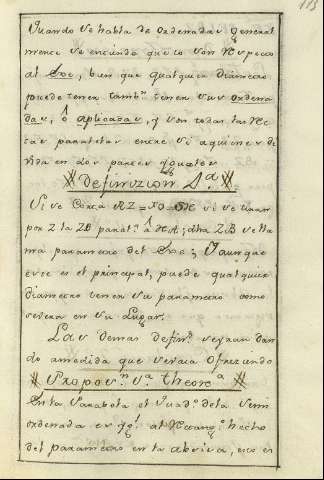 Quando se habla de ordenadas general
mente se entiende que lo son Respecto
al Exe, bien que qualquier diametro
puede tener tambn. tener sus ordena
das, ô aplicadas, y son todas las Rec
tas paralelas entre si aquienes di
vida en dos partes yguales
Definizion 4.a
Si se Corta
ma parametro del Exe; Y aunque
este es el principal, puede qualquier
diametro tener su parametro como
severa en su Lugar.
Las demas defins. seyran dan
do amedida que se vaia Ofreziendo
Propos.n 1.a theor.a
En la Parabola el Quad.o dela Semi
ordenada es ygl. al Rectang.o hecho
del parametro en la absisa, esto es